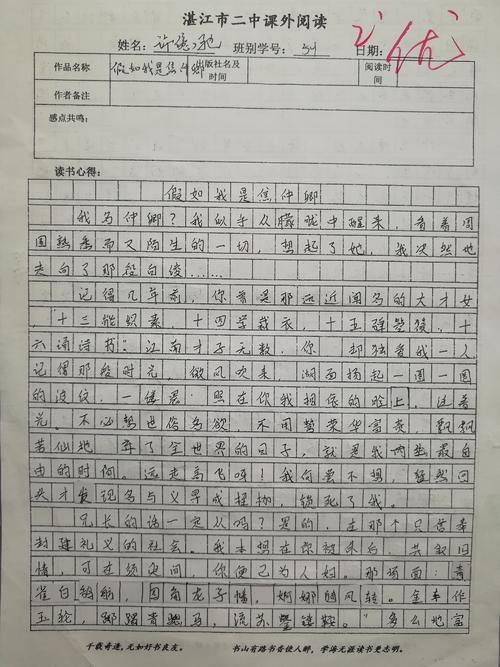 湛江市二中课外阅读
姓名： 班别学号： 日期： 优
作品名称 假如我是焦仲卿 出版社名及时间 阅读时间
作者备注
感点共鸣：
读书心得：
假如我是焦仲卿
我为仲卿？我似乎从朦胧中醒来，看着周
围熟悉而又陌生的一切，想起了她，我决然地
走向了那段白绫……
记得几年前，你曾是那远近闻名的大才女
“十三能织素，十四学裁衣，十五弹箜篌，十
六诵诗书”。江南才子无数，你 却独爱我一人，
记得那段时光，微风吹来，湖面扬起一圈一圈
的波纹，一缕晨 照在你我相依的脸上，泛着
光。不必想世俗名欲，不用 荣华富贵，飘飘
若仙地 弃了全世界的日子，就是我俩 最自
由的时间。远走高飞呀！我何尝不想，经然回
头才发现名与义早成桎梏，锁死了我。
兄长的话一定从吗？是的，在那个只
封建礼义的社会。我本想在你被 后，共叙旧
情，可在须臾间，你便已为人妇。那场面：青
雀白鹄舫，四角龙子幡，婀娜随风转。金车作
玉轮，踯躅青骢马，流苏 鞍。”多么地富
千载奇逢，无如好书良友。 书山有路书香使人醉，学海无涯读书更志明。